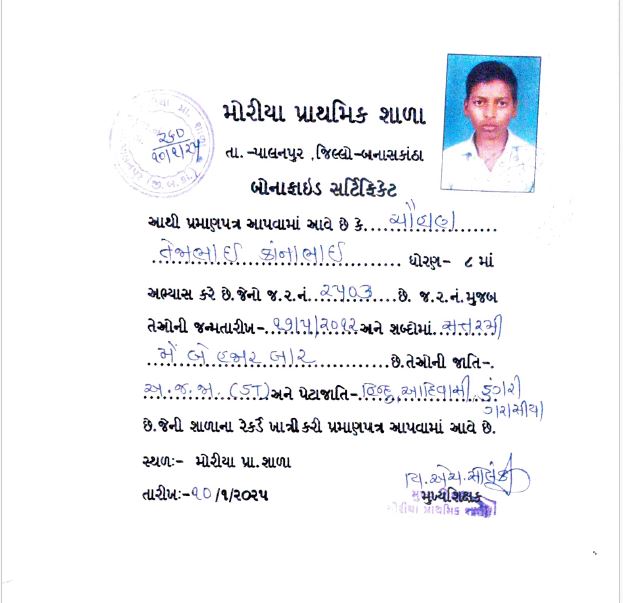 મોરીયા પ્રાથમિક શાળા
૧૦/૧/૨૫
તા. -પાલનપુર ,જિલ્લો-બનાસકાંઠા
બોનાફાઇડ સર્ટિફિકેટ
આથી પ્રમાણપત્ર આપવામાં આવે છે કે....ચૌહાણ
તેજાભાઈ કાંનાભાઈ ધોરણ- ૮ માં
અભ્યાસ કરે છે.જેનો જ.ર.નં...૨૫૦૩...છે. જ.ર.નં.મુજબ
તેઓની જન્મતારીખ-.૧૭/૫/૨૦૧૨.અને શબ્દોમાં.સત્તરમી
મે બે હજાર બાર છે.તેઓની જાતિ-.
અ.જ.જા. (ST)અને પેટાજાતિ-હિન્દુ,આદિવાસી ડુંગરી
ગરાસીયા
છે.જેની શાળાના રેકર્ડે ખાત્રી કરી પ્રમાણપત્ર આપવામાં આવે છે.
સ્થળઃ- મોરીયા પ્રા.શાળા
તારીખઃ-૧૦/૧/૨૦૨૫
મુખ્યશિક્ષક
મોરીયા પ્રાથમિક શાળા